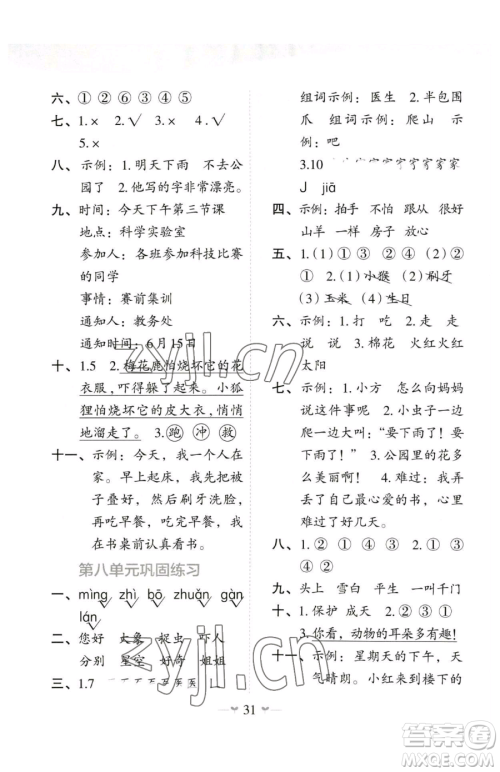 六、① ② ⑥ ③ ④ ⑤
七、1.× 2.√ 3.× 4.√
5.×
八、示例：1.明天下雨 不去公
园了 2.他写的字非常漂亮。
九、时间：今天下午第三节课
地点：科学实验室
参加人：各班参加科技比赛
的同学
事情：赛前集训
通知人：教务处
通知时间：6月15日
十、1.5 2.梅花鹿怕烧坏它的花
衣服，吓得躲了起来。小狐
狸怕烧坏它的皮大衣，悄悄
地溜走了。 3.跑 冲 救
十一、示例：今天，我一个人在家。
早上起床，然后刷牙洗脸，
再吃早餐，吃完早餐，我坐
在书桌前认真看书。
第八单元巩固练习
一、mìng zhì bō zhuǎn gàn
lán
二、您好 大象 捉虫 吓人
分别 星空 好奇 姐姐
三、1.7
组词示例：医生 2.半包围
爪 组词示例：爬山 写句
示例：吧
3.10
J jiā
四、示例：拍手 不怕 跟从 很好
山羊 一样 房子 放心
五、1.(1)① ③ ② ④ (2)②
③ ① 2.(1)小猴 (2)刷牙
(3)玉米 (4)生日
六、示例：1.打 吃 2.走 走
说说 3.棉花 火红火红
太阳
七、示例：1.小方 怎么向妈妈
说这件事呢 2.小虫子一边
爬一边大叫：“要下雨了！要
下雨了！” 3.公园里的花多
么美丽！ 4.难过；我难过
极了，因为我丢失了自己最
心爱的书
开心；星期天，我开心地玩
了好几天。
八、① ② ④ ③ ⑤
九、头上 雪白 平生 一叫千门
十、1.保护 成天 2.② ① ③
3.你看，动物的耳朵多有用！
十一、示例：星期天的下午，天
气晴朗。小红来到楼下的
31
zyjl.cn
zyjl.cn
答案圈
MXQE.COM